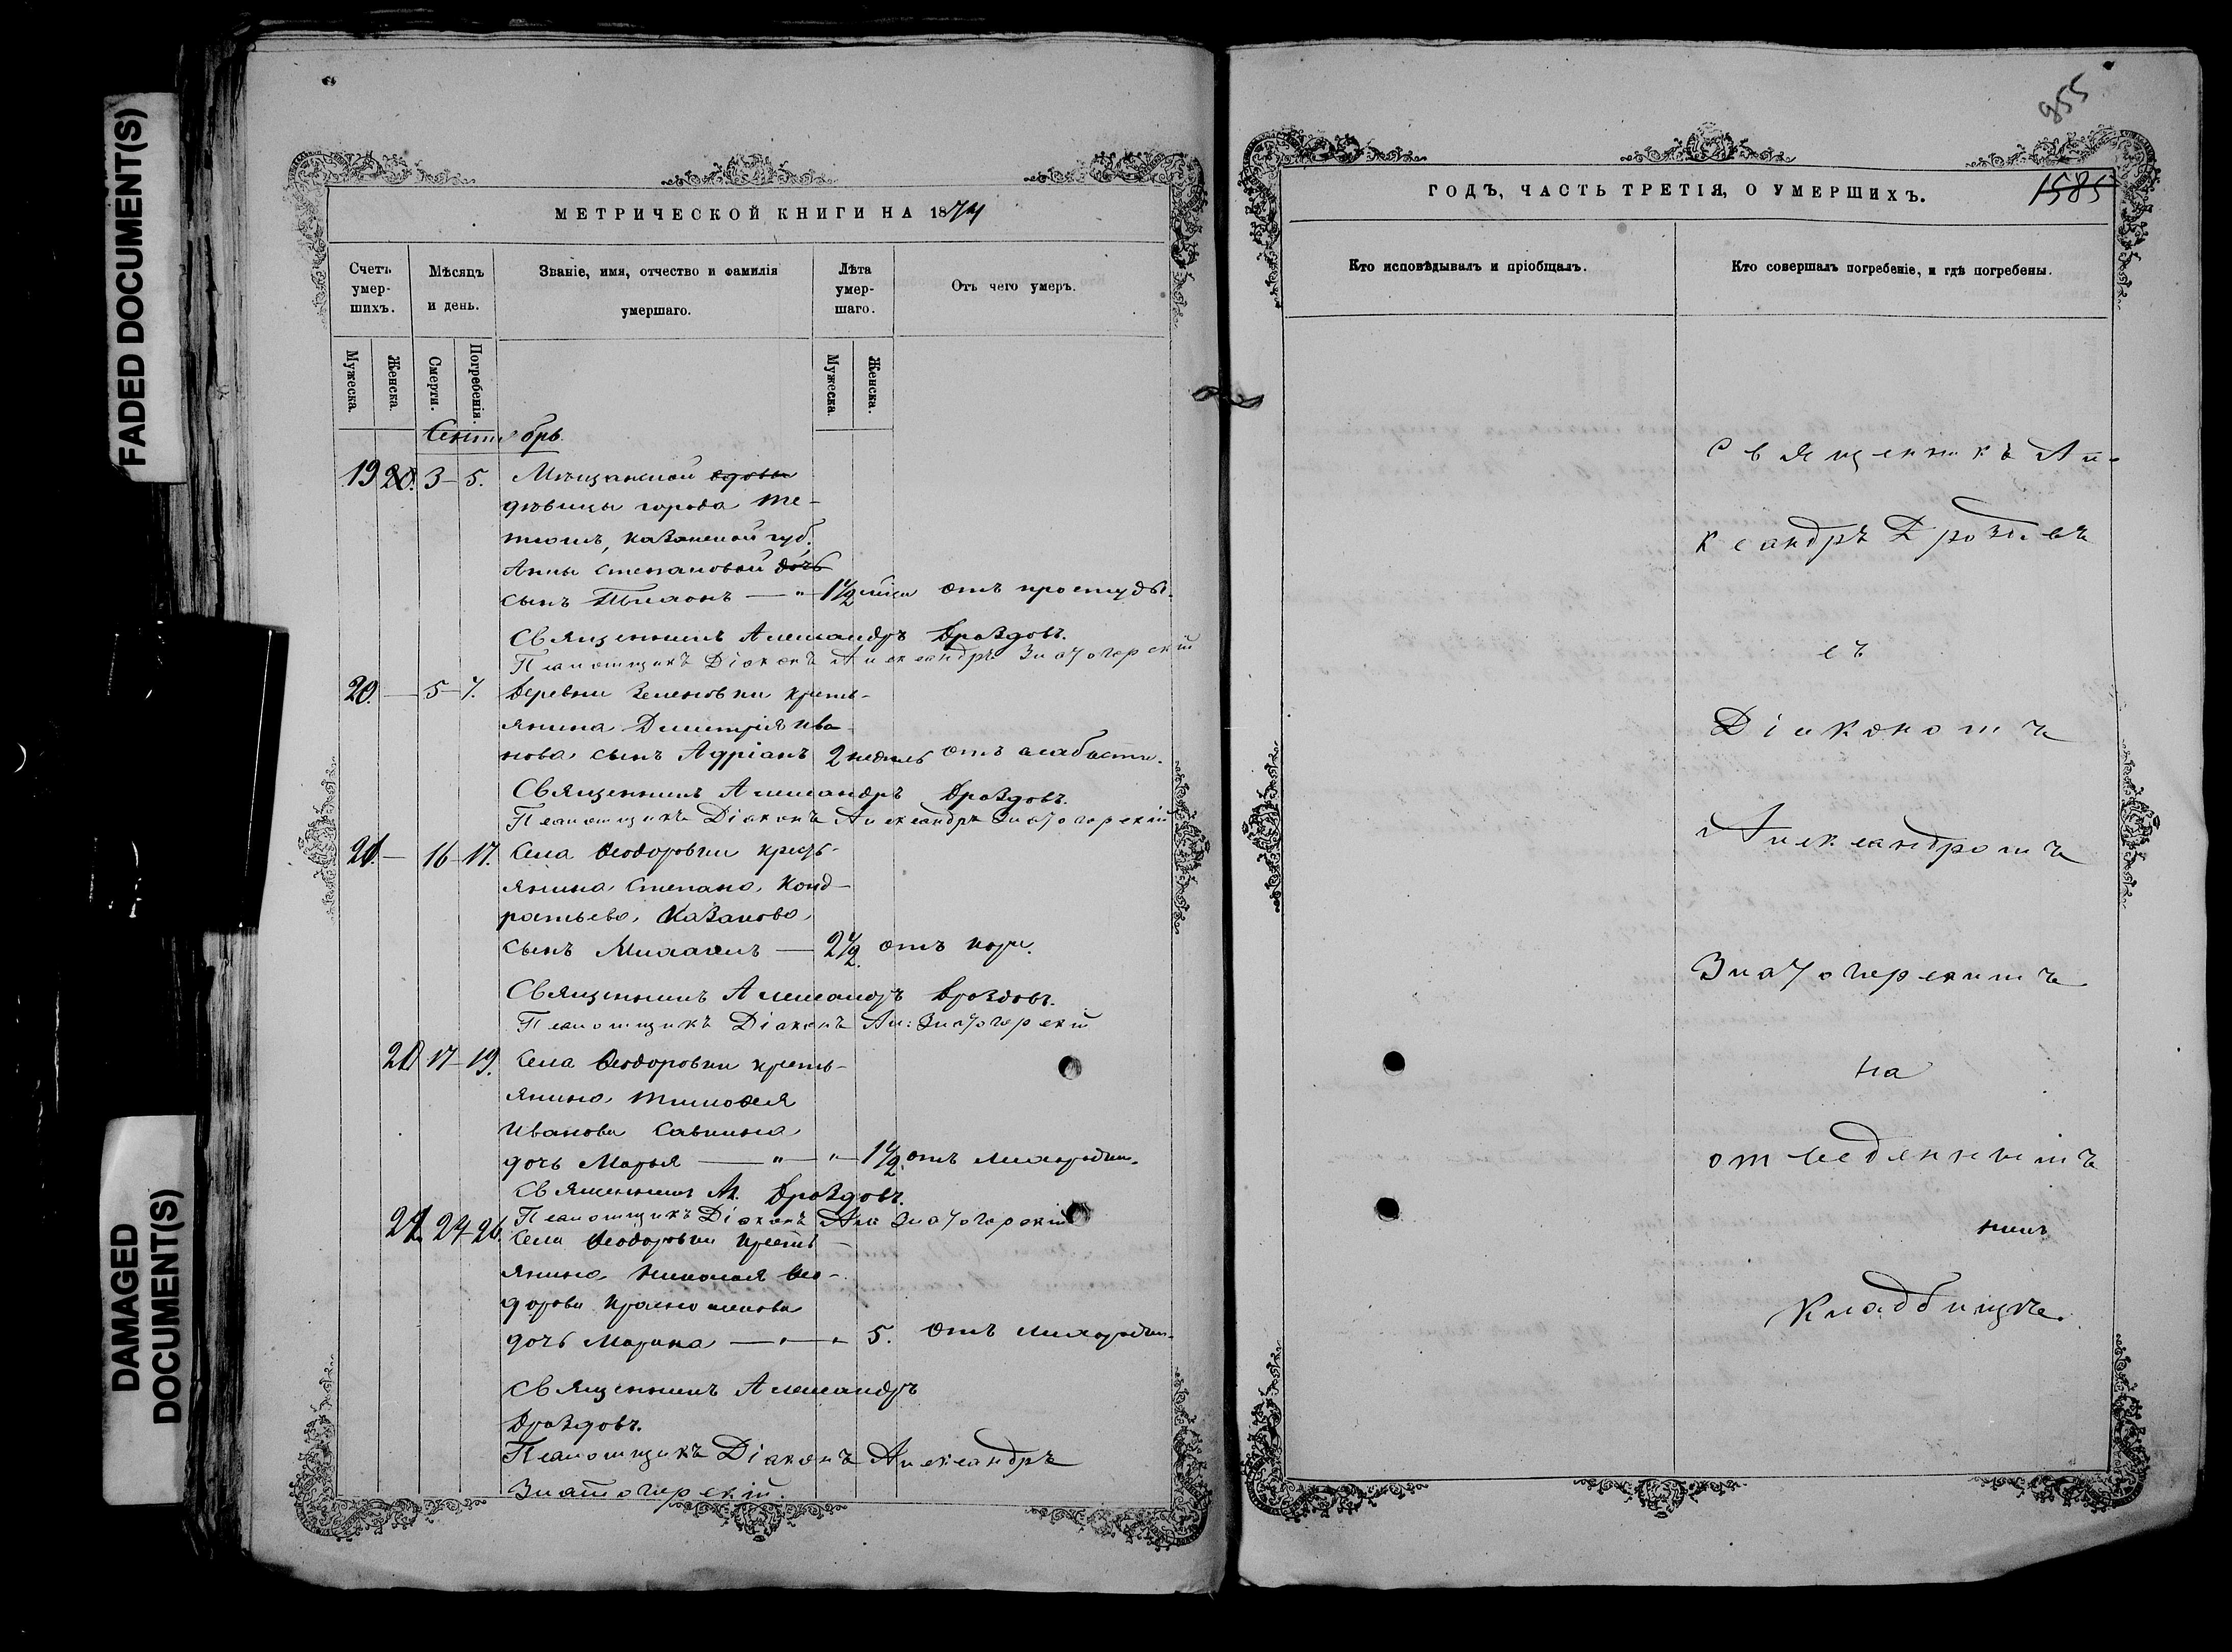 FADED DOCUMENT(S)
DAMAGED
DOCUMENT(S)
МЕТРИЧЕСКОЙ КНИГИ НА 1874
Счетъ умер-шихъ.
Мѣсяцъ и день.
Званіе, имя, отчество и фамилія умершаго.
Лѣта умер-шаго.
Отъ чего умеръ.
Мужеска.
Женска.
Смерти.
Погребенія.
Мужеска.
Женска.
Сентябрь
19 20. 3 – 5. Мѣщанской вдовы
дѣвицы города Те-
тюшъ, Казанской губ.
Анны Степановой дочь
сынъ Тихонъ — " 1 1/2 отъ простуды.
Священникъ Александръ Дроздовъ.
Псаломщикъ Діаконъ Александръ Златогорскій
20. — 5 – 7. Деревни Зеленовки кресть-
янина Димитрія Ива-
нова сынъ Адріанъ 2 недѣль отъ слабости.
Священникъ Александръ Дроздовъ.
Псаломщикъ Діаконъ Александръ Златогорскій
21. — 16 – 17. Села Ѳеодоровки кресть-
янина Степана Конд-
ратьева Казакова
сынъ Михаилъ — 2 1/2 отъ кори.
Священникъ Александръ Дроздовъ.
Псаломщикъ Діаконъ Ал: Златогорскій
20 17 – 19. Села Ѳеодоровки кресть-
янина Тимоѳея
Иванова Савкина
дочь Марья — " — " — 1 1/2 отъ лихорадки.
Священникъ Ал. Дроздовъ.
Псаломщикъ Діаконъ Ал Златогорскій
21 24 – 26. Села Ѳеодоровки кресть-
янина Николая Ѳео-
дорова
дочь Марина — " — " 5. отъ лихорадки.
Священникъ Александръ
Дроздовъ.
Псаломщикъ Діаконъ Александръ
Златогорскій.
955
ГОДЪ, ЧАСТЬ ТРЕТІЯ, О УМЕРШИХЪ.
1585
Кто исповѣдывалъ и пріобщалъ.
Кто совершалъ погребеніе, и гдѣ погребены.
Священникъ Але-
ксандръ Дроздовъ
съ
Діакономъ
Александромъ
Златогорскимъ
на
отведенномъ
нихъ
кладбищѣ.